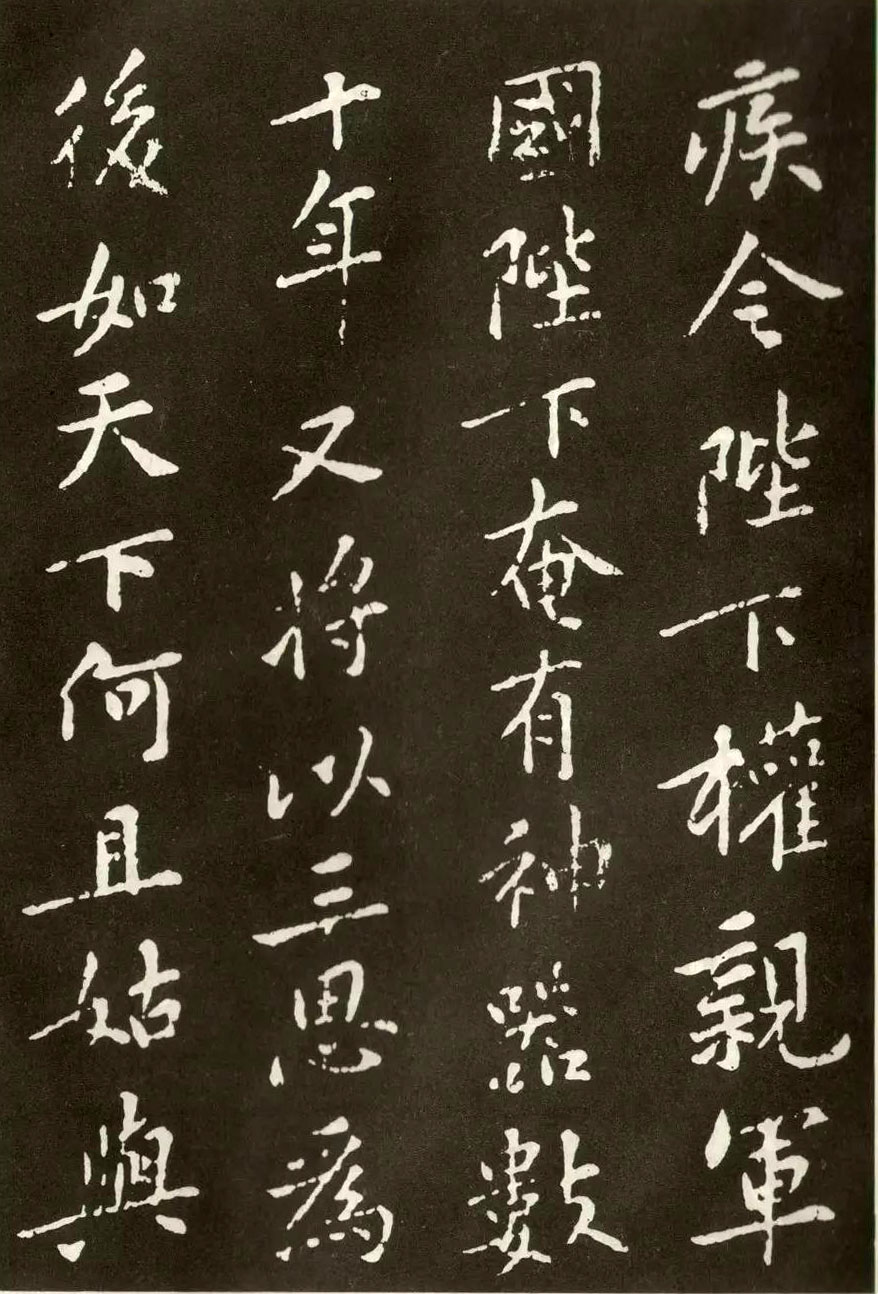 疾令陛下權親軍
國陛下奄有神器數
十年又將以三思爲
後如天下何且姑與